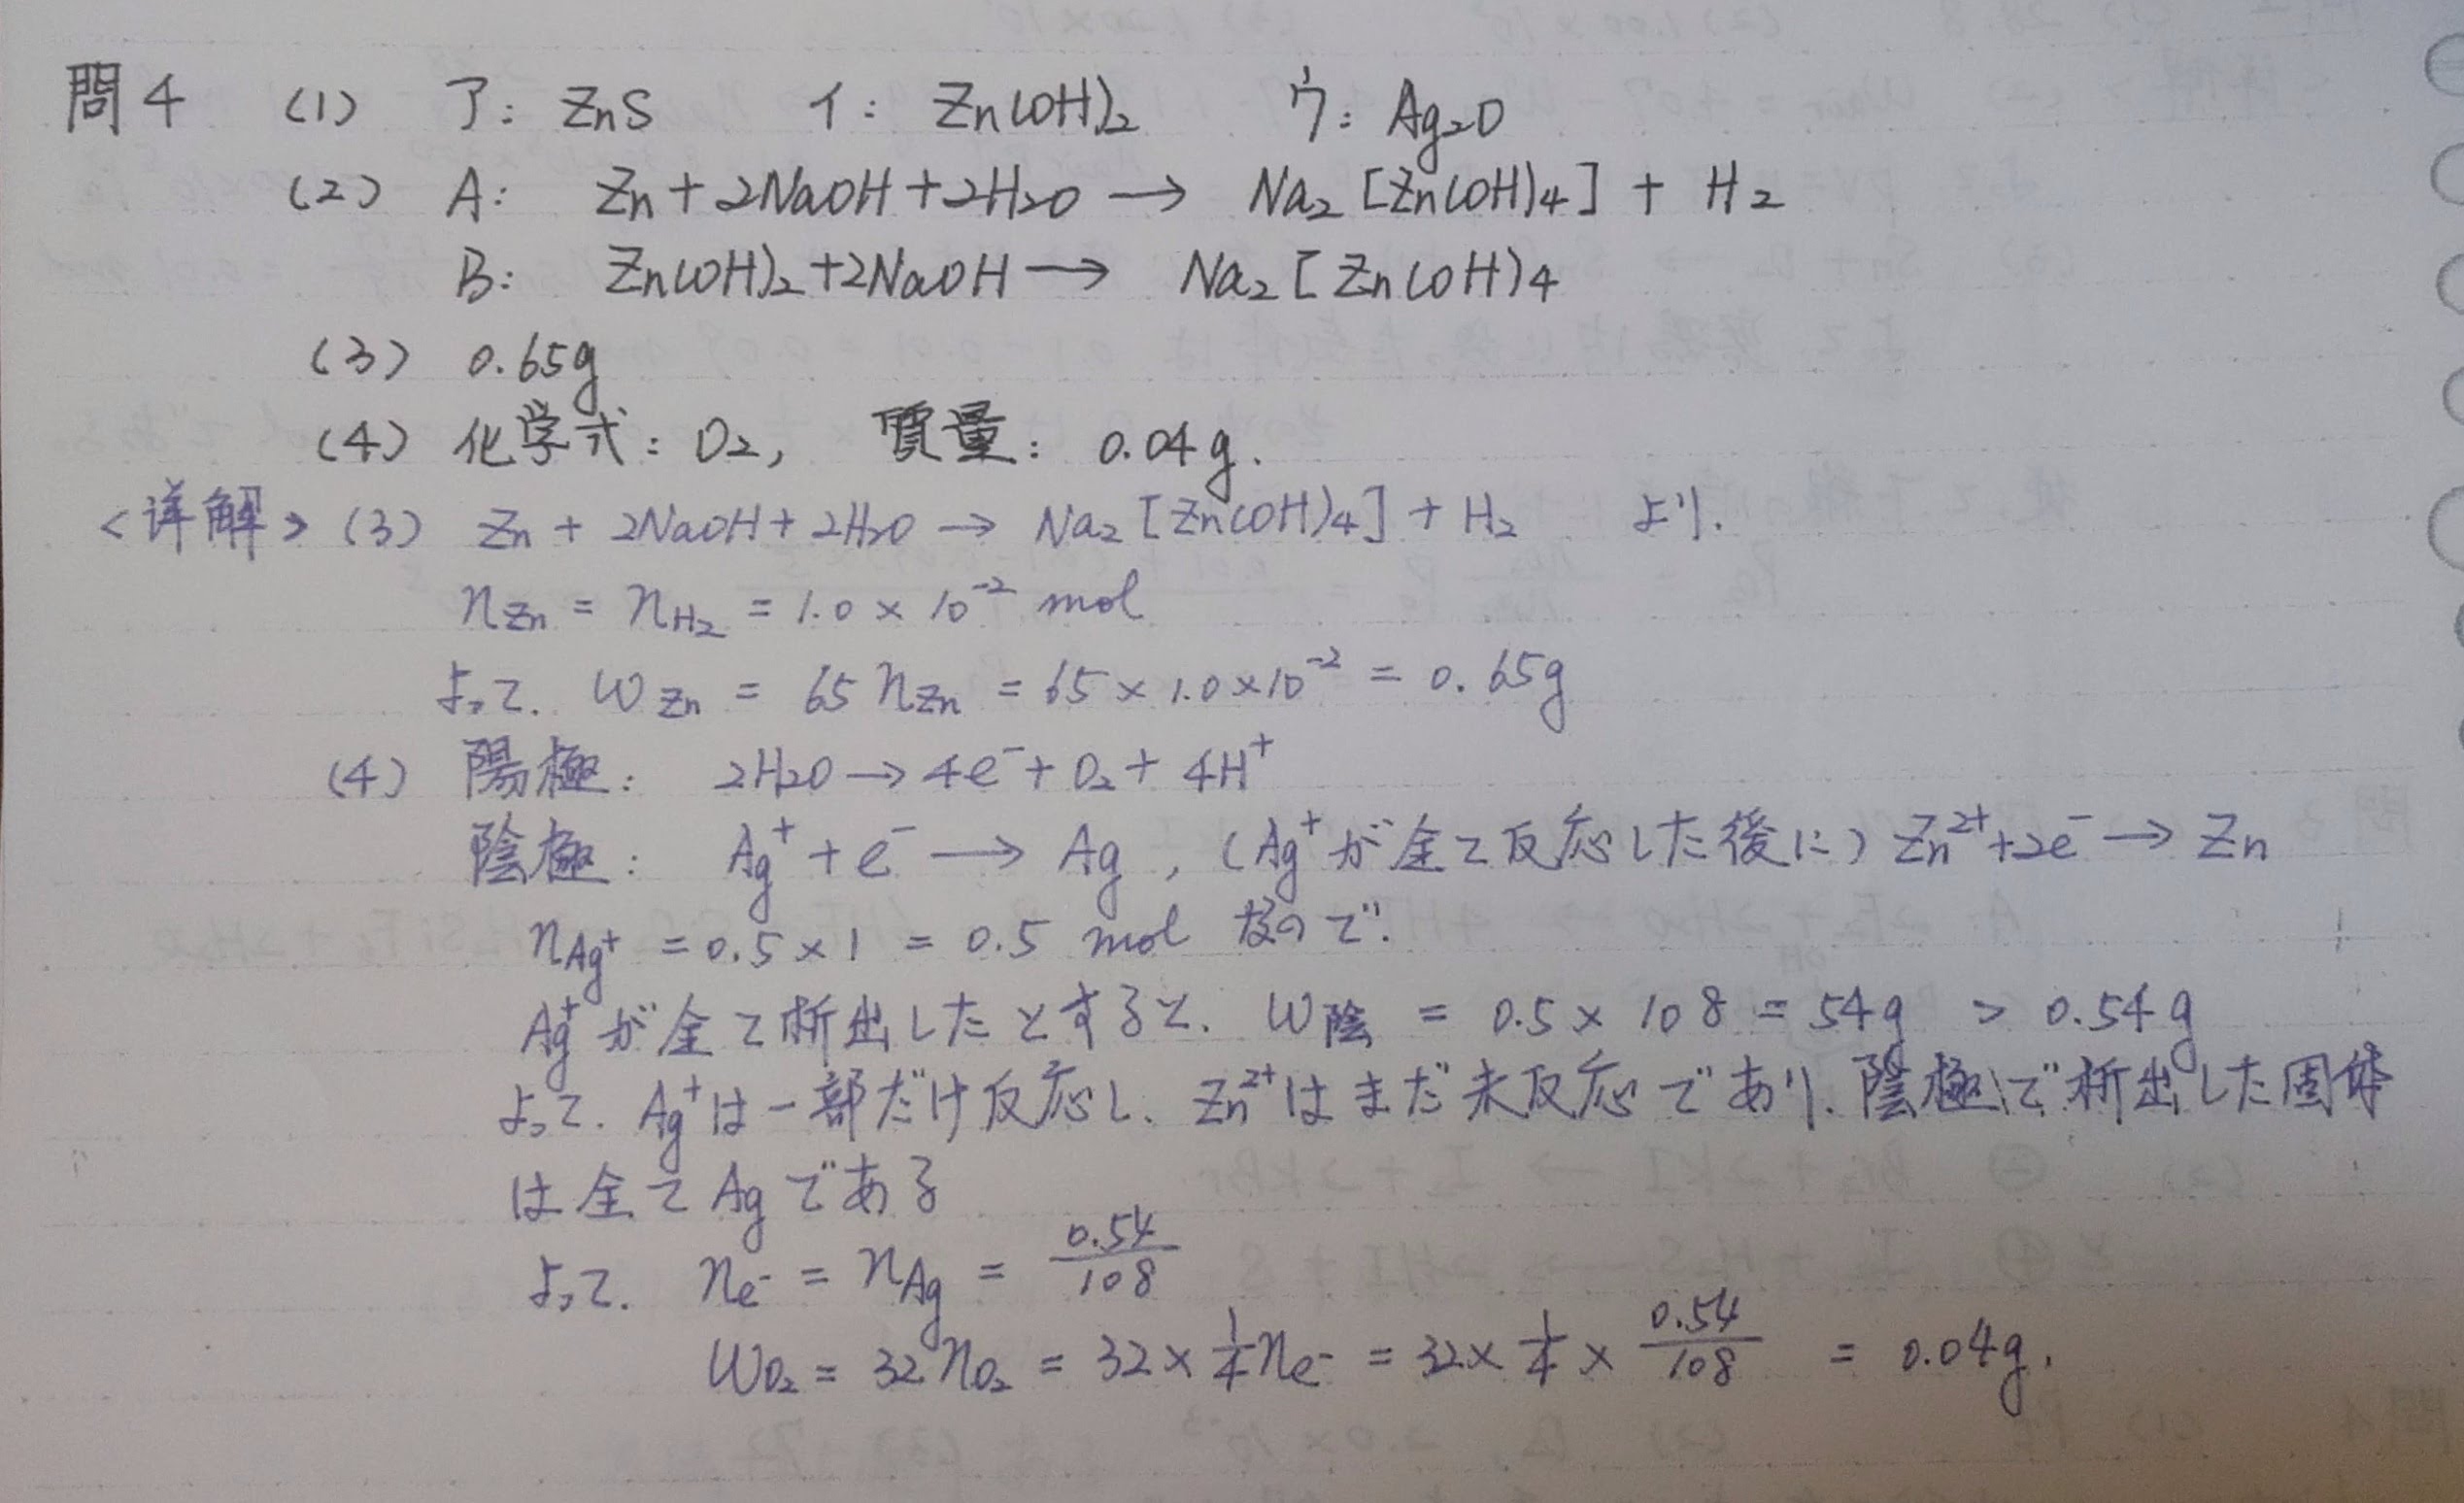 問4 (1) ア: ZnS イ: Zn(OH)₂ ウ: Ag₂O
(2) A: Zn + 2NaOH + 2H₂O → Na₂[Zn(OH)₄] + H₂
B: Zn(OH)₂ + 2NaOH → Na₂[Zn(OH)₄
(3) 0.65g
(4) 化学式: O₂, 質量: 0.04g.
<详解> (3) Zn + 2NaOH + 2H₂O → Na₂[Zn(OH)₄] + H₂ より.
n_Zn = n_H₂ = 1.0 × 10⁻² mol
よって. w_Zn = 65 n_Zn = 65 × 1.0 × 10⁻² = 0.65g
(4) 陽極: 2H₂O → 4e⁻ + O₂ + 4H⁺
陰極: Ag⁺ + e⁻ → Ag , (Ag⁺が全て反応した後に) Zn²⁺ + 2e⁻ → Zn
n_Ag⁺ = 0.5 × 1 = 0.5 mol なので.
Ag⁺が全て析出したとすると. w陰 = 0.5 × 108 = 54g > 0.54g
よって. Ag⁺は一部だけ反応し、Zn²⁺はまだ未反応であり、陰極で析出した固体
は全てAgである
よって. n_e⁻ = n_Ag = 0.54/108
w_O₂ = 32 n_O₂ = 32 × 1/4 n_e⁻ = 32 × 1/4 × 0.54/108 = 0.04g.